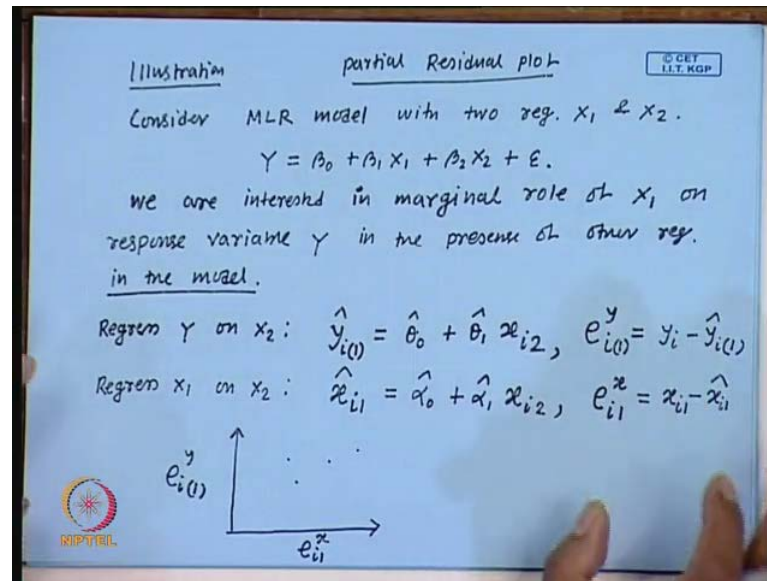 Illustration partial Residual plot
© CET
I.I.T. KGP
Consider MLR model with two reg. X₁ & X₂.
Y = β₀ + β₁ X₁ + β₂ X₂ + ε.
we are interested in marginal role of X₁ on
response variable Y in the presence of other reg.
in the model.
Regress Y on X₂: ŷᵢ₍₁₎ = θ̂₀ + θ̂₁ xᵢ₂, eʸᵢ₍₁₎ = yᵢ - ŷᵢ₍₁₎
Regress X₁ on X₂: x̂ᵢ₁ = α̂₀ + α̂₁ xᵢ₂, eˣᵢ₁ = xᵢ₁ - x̂ᵢ₁
eʸᵢ₍₁₎
eˣᵢ₁
NPTEL